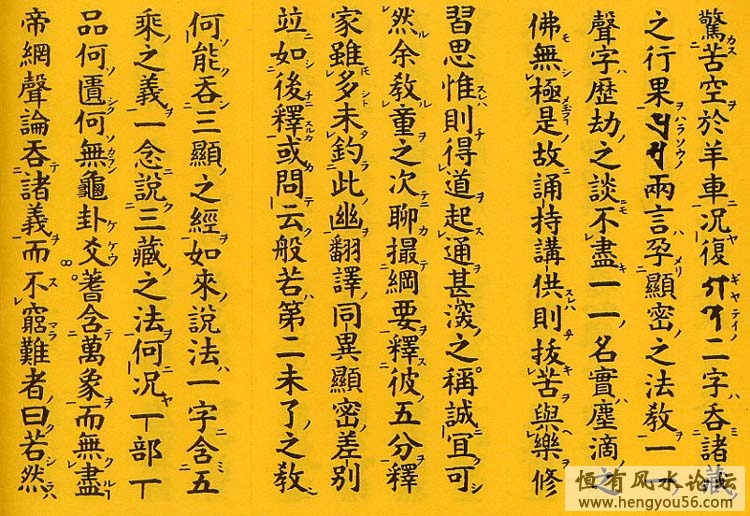 驚苦空於羊車況復二字吞諸藏
之行果兩言孕顯密之法教一一
聲字歷劫之談不盡一一名實塵滴之
佛無極是故誦持講供則抜苦與樂修
習思惟則得道起通甚深之稱誠宜可
然余教童之次聊撮綱要釋彼五分釋
家雖多未釣此幽翻譯同異顯密差別
竝如後釋或問云般若第二未了之教
何能吞三顯之經如來說法一字含五
乘之義一念說三藏之法何況丅部丅
品何匱何無龜卦爻蓍含萬象而無盡
帝網聲論吞諸義而不窮難者曰若然
恒有风水论坛
www.hengyou56.com